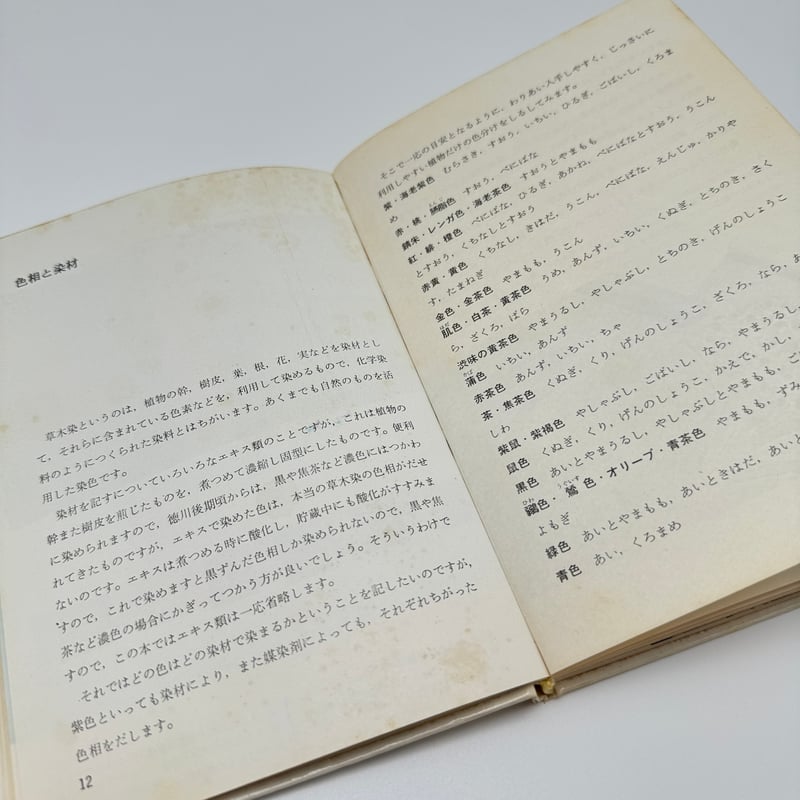 色相と染材
草木染というのは，植物の幹，樹皮，葉，根，花，実などを染材とし
て，それらに含まれている色素などを，利用して染めるもので，化学染
料のようにつくられた染料とはちがいます。あくまでも自然のものを活
用した染色です。
染材を記すについていろいろなエキス類のことですが，これは植物の
幹また樹皮を煎じたものを，煮つめて濃縮し固型にしたものです。便利
に染められますので，徳川後期頃からは，黒や焦茶など濃色にはつかわ
れてきたものですが，エキスで染めた色は，本当の草木染の色相がだせ
ないのです。エキスは煮つめる時に酸化し，貯蔵中にも酸化がすすみま
すので，これで染めますと黒ずんだ色相しか染められないので，黒や焦
茶など濃色の場合にかぎってつかう方が良いでしょう。そういうわけで
すので，この本ではエキス類は一応省略します。
それではどの色はどの染材で染まるかということを記したいのですが，
紫色といっても染材により，また媒染剤によっても，それぞれちがった
色相をだします。
12
そこで一応の目安となるように，わりあい入手しやすく，じっさいに
利用しやすい植物だけの色分けをしるしてみます。
紫・海老紫色　むらさき，すおう，いちい，ひるぎ，ごばいし，くろま
め
赤・桃・臙脂色　すおう，べにばな
錆朱・レンガ色・海老茶色　すおうとやまもも
紅・緋・橙色　べにばな，ひるぎ，あかね，べにばなとすおう，うこん
とすおう，くちなしとすおう
赤黄・黄色　くちなし，きはだ，うこん，べにばな，えんじゅ，かりや
す，たまねぎ
金色・金茶色　やまもも，うこん
肌色・白茶・黄茶色　うめ，あんず，いちい，くぬぎ，とちのき，さく
ら，ざくろ，ばら
渋味の黄茶色　やまうるし，やしゃぶし，とちのき，げんのしょうこ
蒲色　いちい，あんず
赤茶色　あんず，いちい，ちゃ
茶・焦茶色　くぬぎ，くり，げんのしょうこ，ざくろ，なら，あ
しわ
紫鼠・紫褐色　やしゃぶし，ごばいし，なら，やまうるし，
鼠色　くぬぎ，くり，げんのしょうこ，かえで，かし，
黒色　あいとやまうるし，やしゃぶしとやまもも，ご
色・鶯色・オリーブ・青茶色　やまもも，ずみ
よもぎ
緑色　あいとやまもも，あいときはだ，あいと
青色　あい，くろまめ